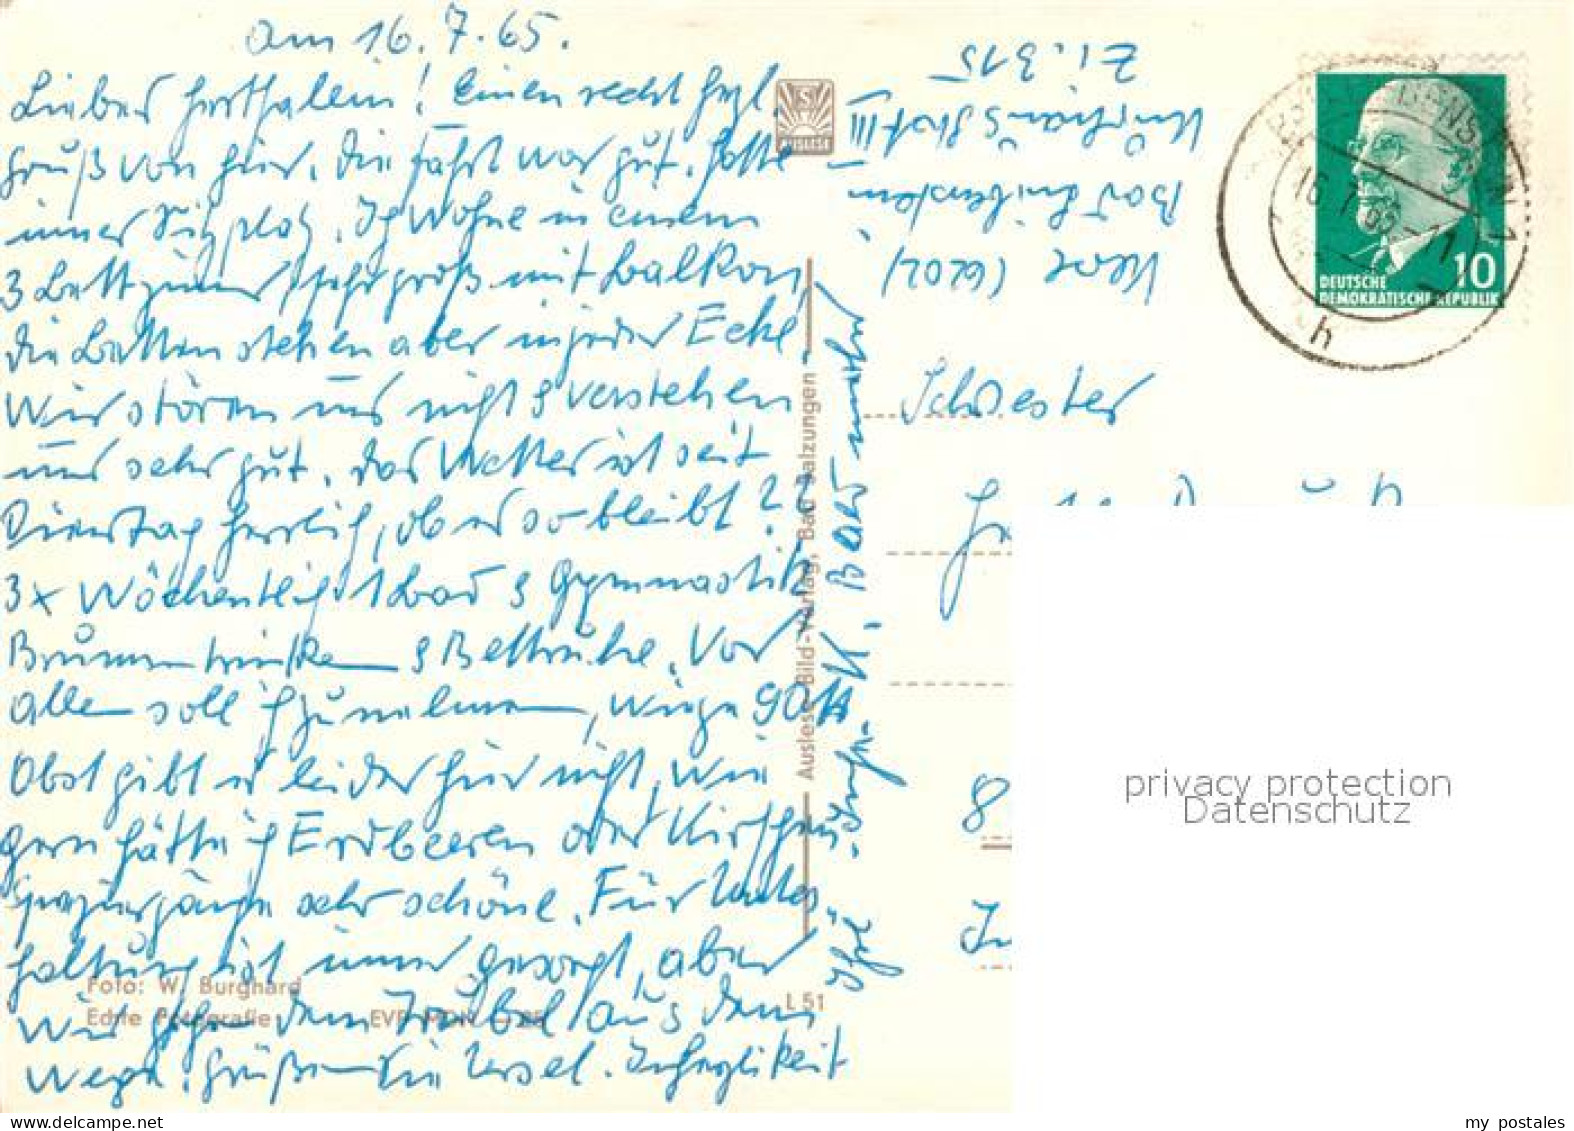 am 16. 7. 65.
Lieber ! Einen recht herzl.
Gruß von hier. Die Fahrt war gut. Hatte
immer Sitzplatz. Ich wohne in einem
3 Bettzimmer sehr groß mit Balkon,
die Betten stehen aber in jeder Ecke.
Wir stören uns nicht & verstehen
uns sehr gut. Das Wetter ist seit
Dienstag herrlich, ob es so bleibt??
3x Wöchentlich 1 Bad & Gymnastik
Brunnentrinken & Bettruhe. Vor
allem soll ich zunehmen, wiege 90
Obst gibt es leider hier nicht, wie
gern hätte ich Erdbeeren oder Kirschen
Spaziergänge sehr schöne. Für Unter-
haltung ist immer gesorgt, aber
wir gehen dem Trubel aus dem
Wege. Grüßen Sie Ursel.
Ihre K.
Zi. 315
Kurhaus III
Bad Liebenstein
(6202)
AUSLESE
Auslese-Bild-Verlag, Bad Salzungen
Foto: W. Burghard
Echte Fotografie
L 51
Schwester
8
DEUTSCHE
DEMOKRATISCHE REPUBLIK
10
16.7.65-11
h
privacy protection
Datenschutz
www.delcampe.net
my postales